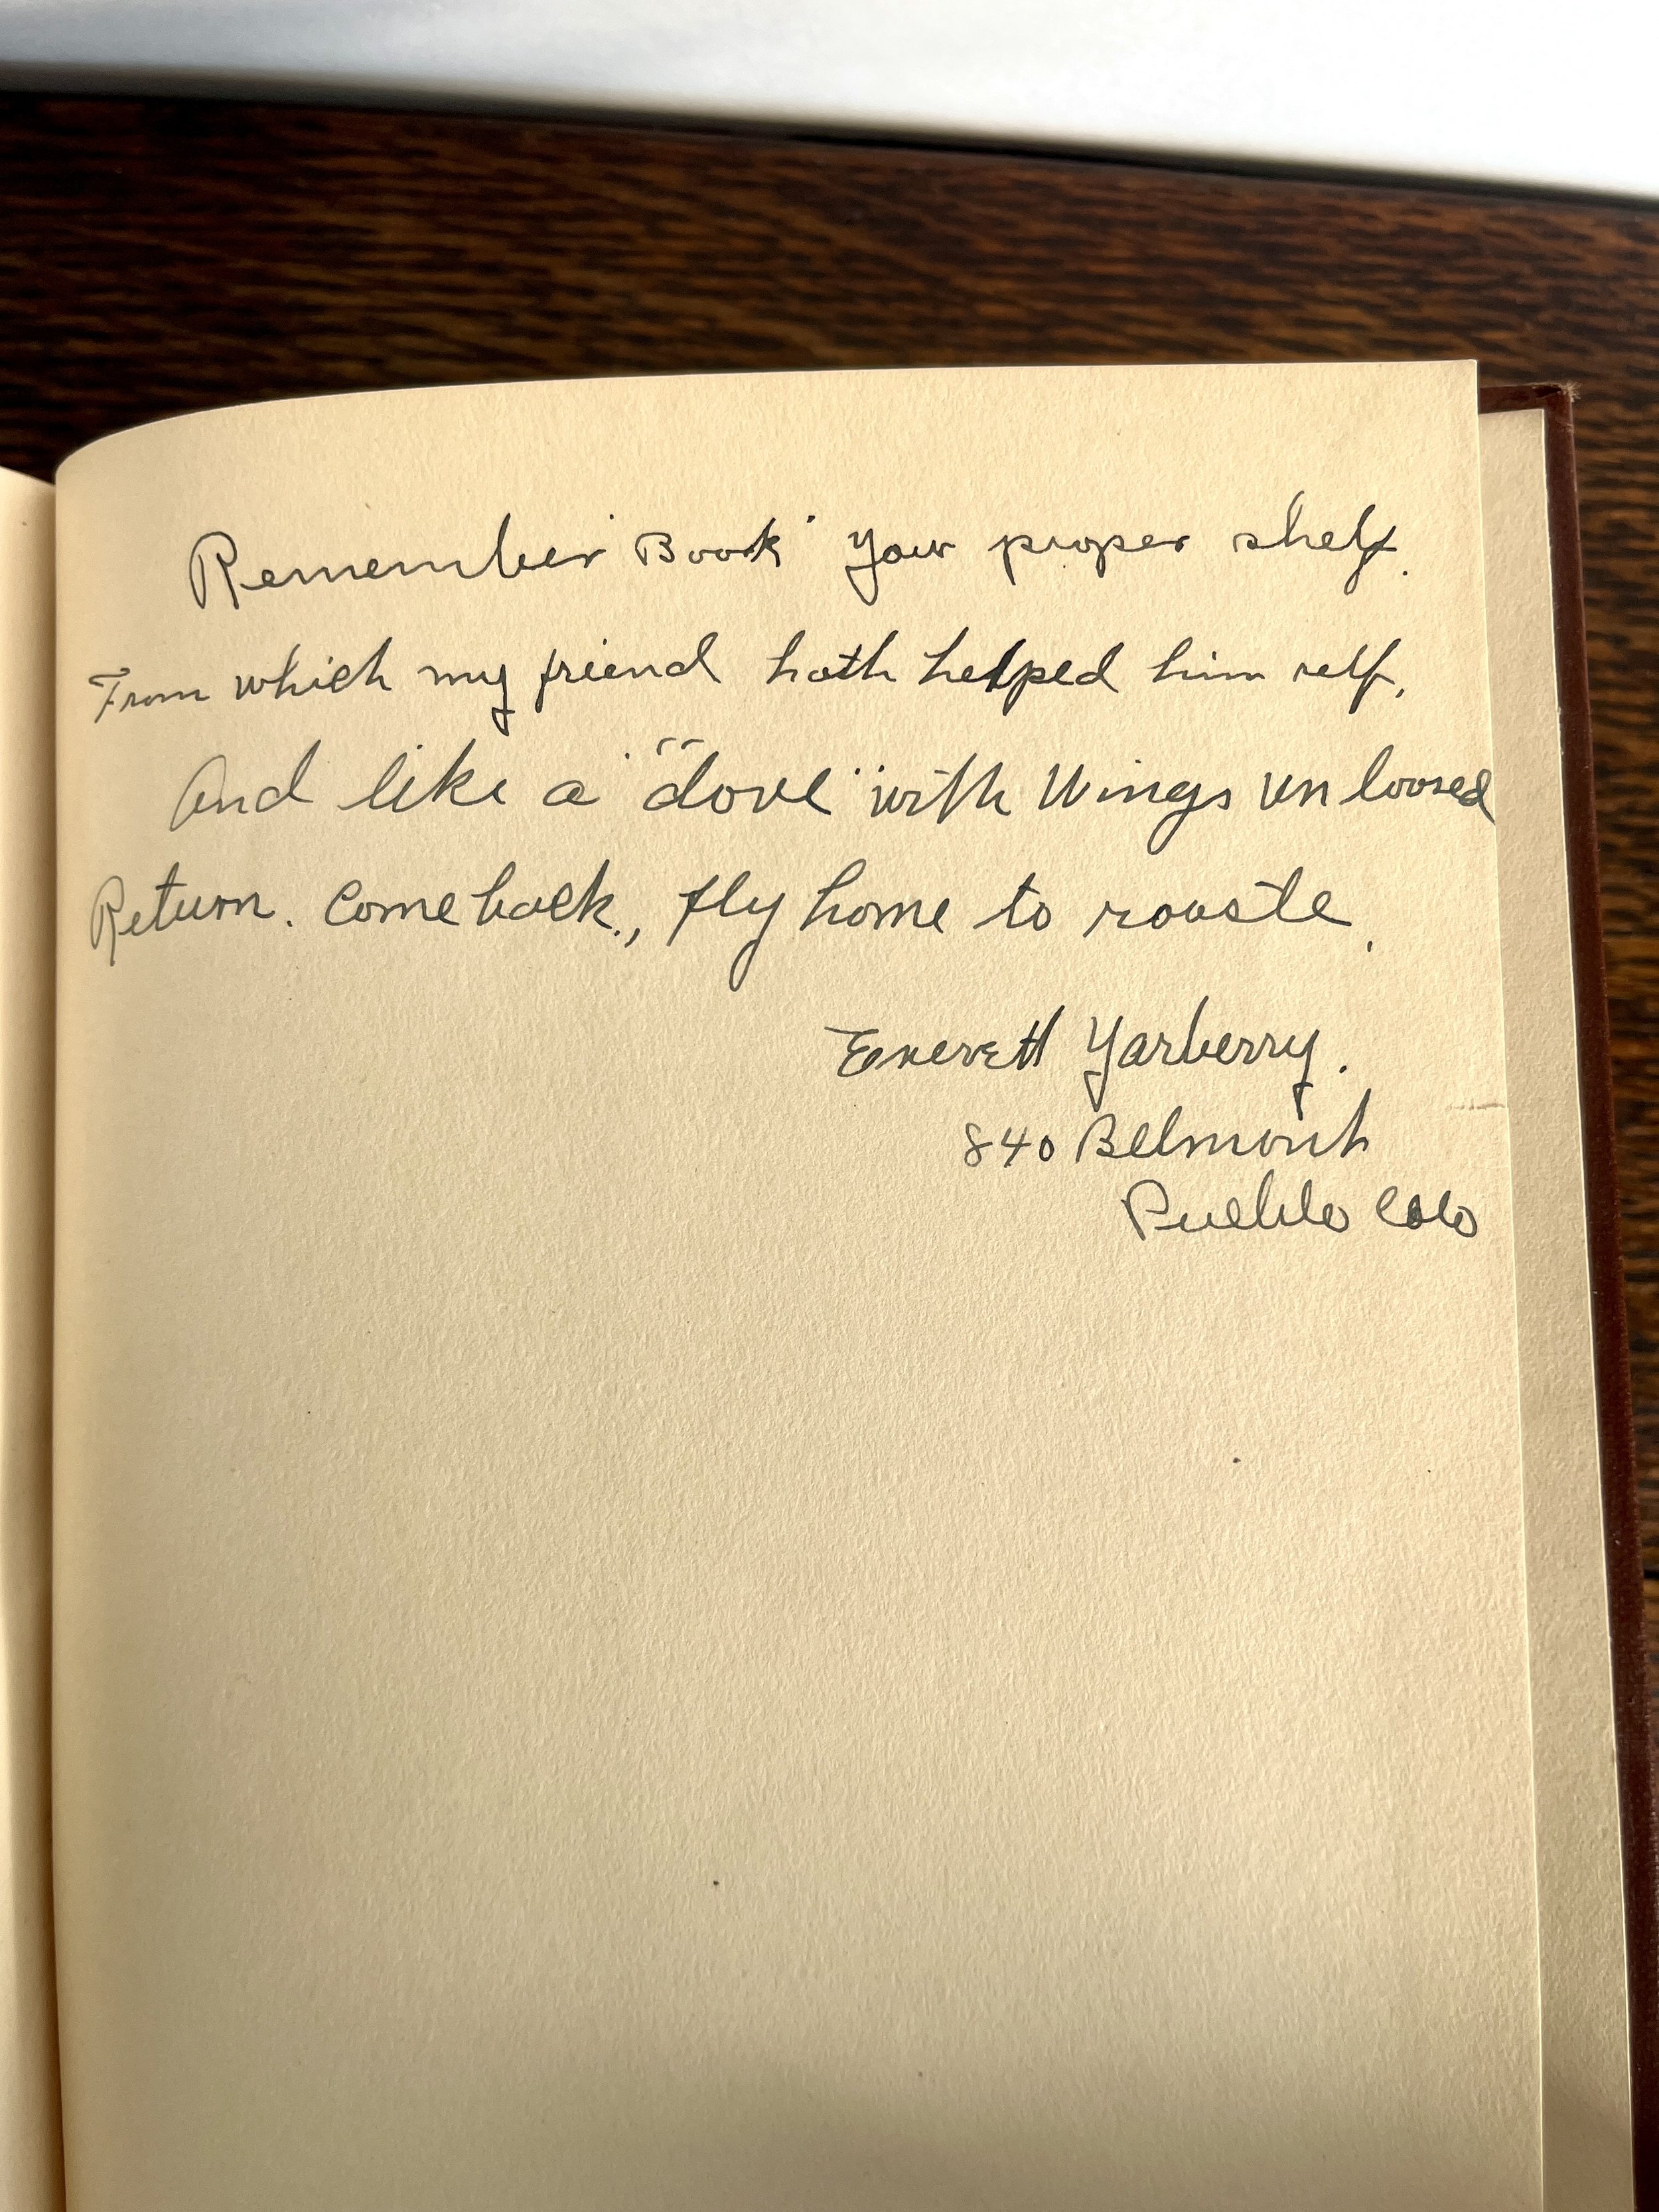 Remember "Book" your proper shelf.
From which my friend hath helped him self,
And like a "dove" with Wings un loosed
Return. Come back., fly home to rooste.
Everett Yarberry.
840 Belmont
Pueblo Colo